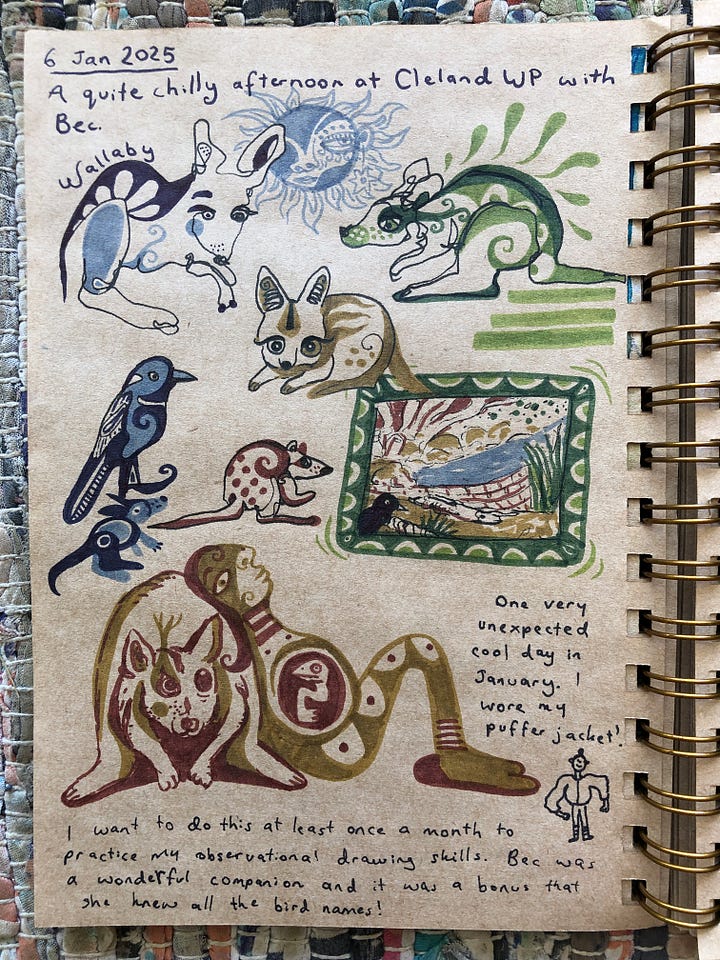 6 Jan 2025
A quite chilly afternoon at Cleland WP with
Bec.
Wallaby
One very
unexpected
cool day in
January. I
wore my
puffer jacket!
I want to do this at least once a month to
practice my observational drawing skills. Bec was
a wonderful companion and it was a bonus that
she knew all the bird names!